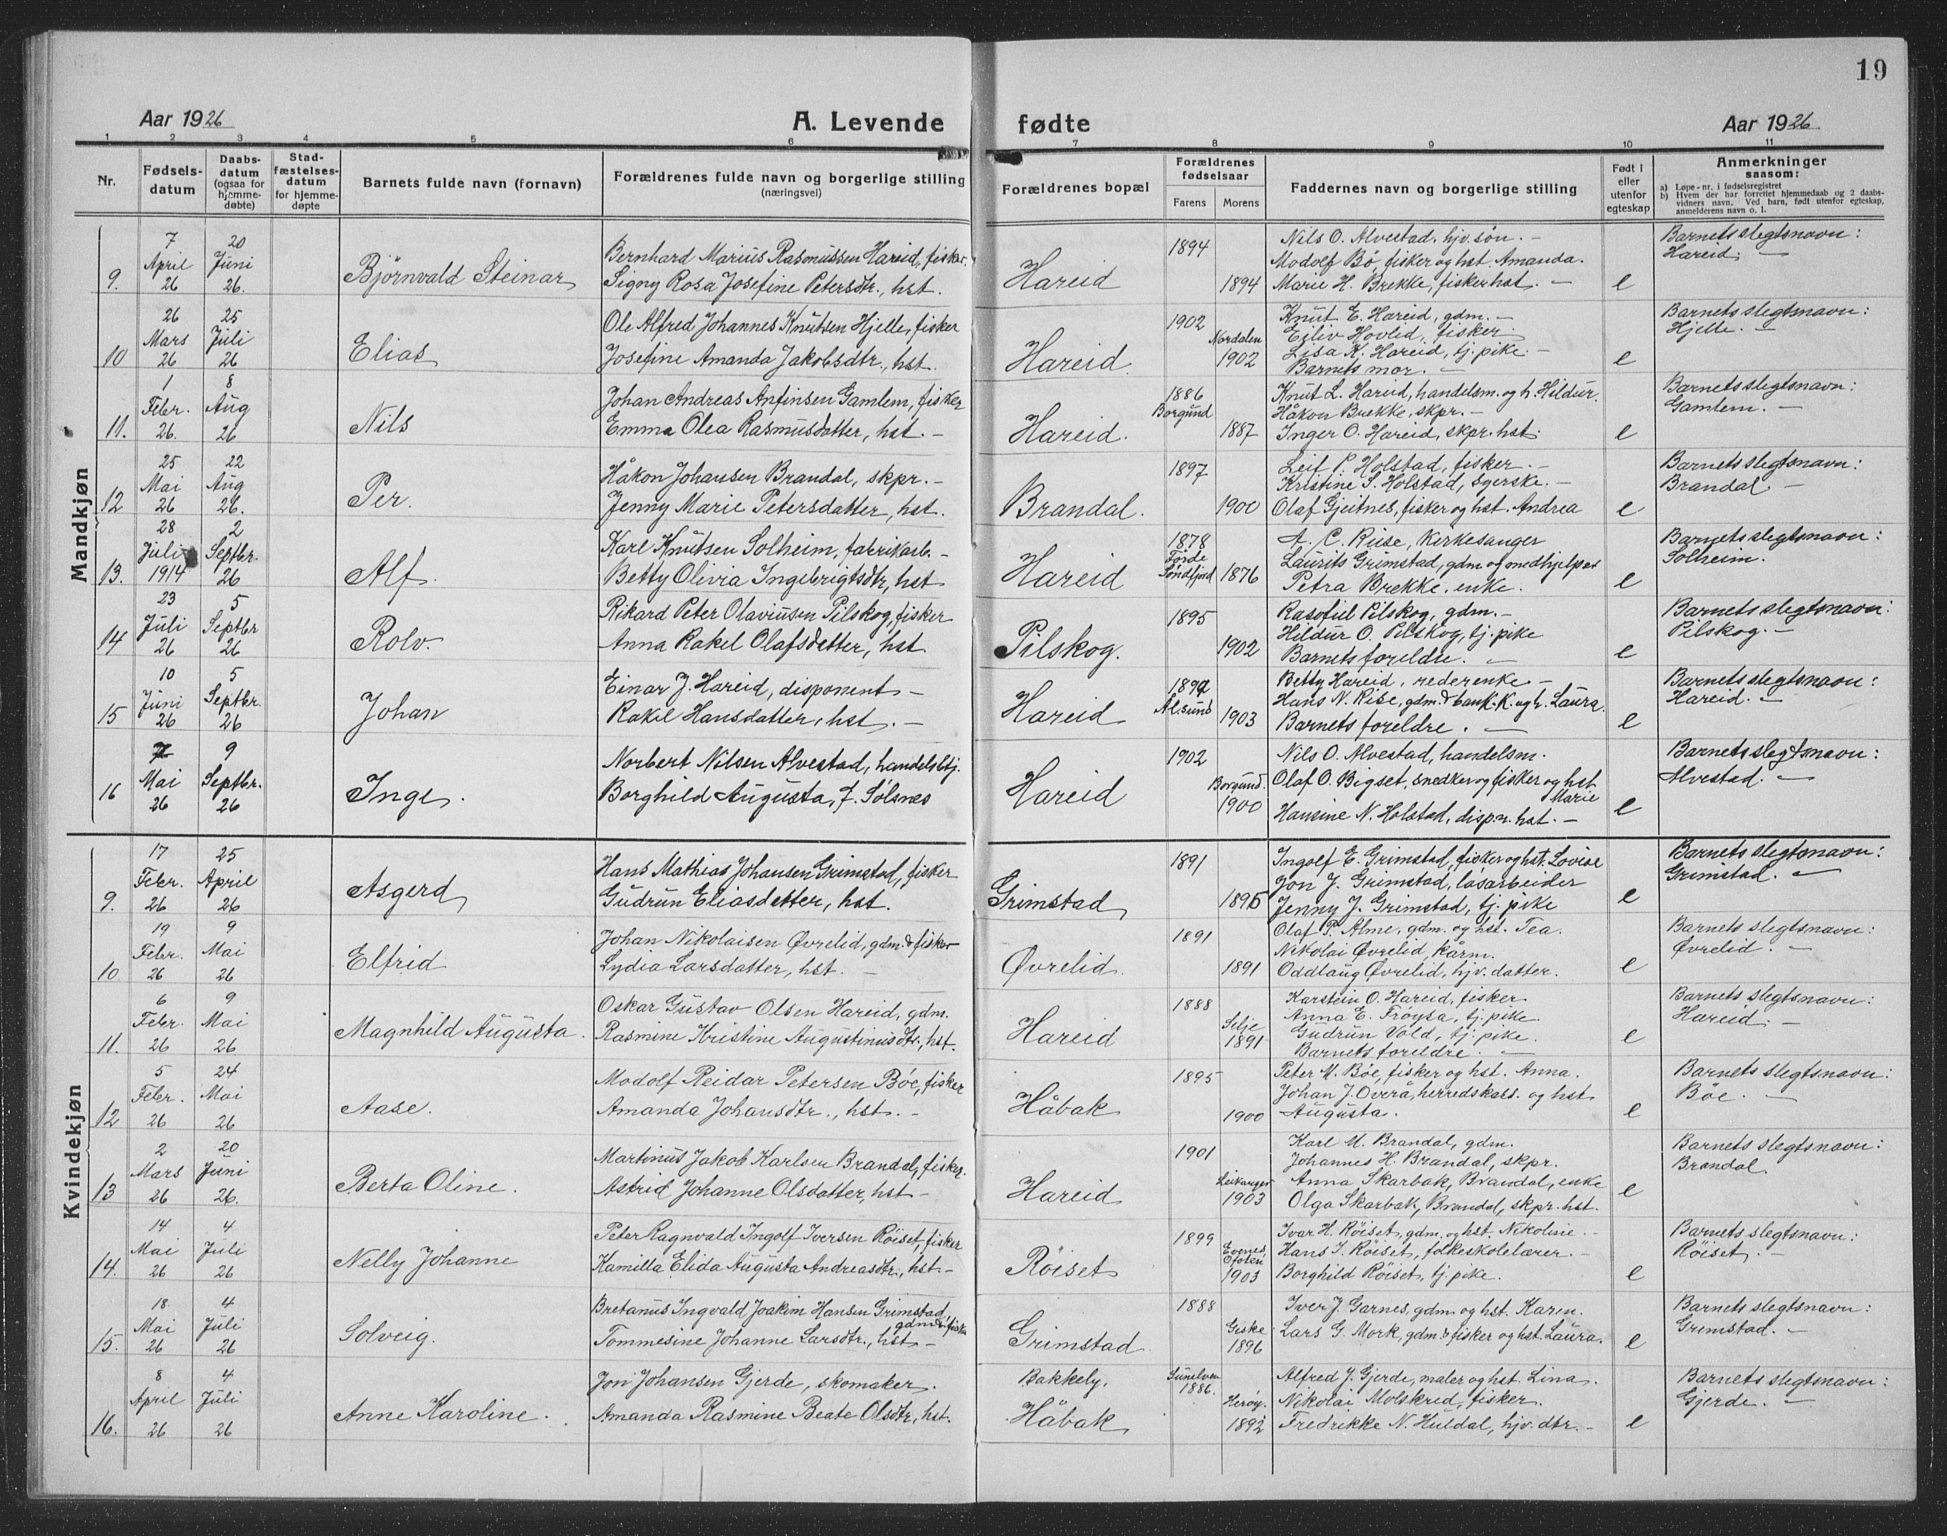 19
Aar 1926 A. Levende fødte Aar 1926
1 2 3 4 5 6 7 8 9 10 11
Nr. Fødsels-datum Daabs-datum (ogsaa for hjemme-døbte) Stad-fæstelses-datum for hjemme-døpte Barnets fulde navn (fornavn) Forældrenes fulde navn og borgerlige stilling (næringsvei) Forældrenes bopæl Forældrenes fødselsaar Farens Morens Faddernes navn og borgerlige stilling Født i eller utenfor egteskap Anmerkninger saasom:
a) Løpe-nr. i fødselsregistret
b) Hvem der har forrettet hjemmedaab og 2 daabs-vidners navn. Ved barn, født utenfor egteskap, anmelderens navn o. l.
Mandkjøn
7 20 Bernhard Marius Rasmussen Hareid, fisker. 1894 Nils O. Alvestad, hjv. søn. — Barnets slegtsnavn:
April Juni Modolf Bö, fisker og hst. Amanda. Hareid. —
9. 26 26. Björnvald Steinar Signy Rosa Josefine Petersdtr., hst. Hareid 1894 Marie H. Brekke, fiskerhst. — e
26 25 Ole Alfred Johannes Knutsen Hjelle, fisker 1902 Knut E. Hareid, gdm. — Barnets slegtsnavn:
Mars Juli Nordalen Eiliv Hovlid, fisker. Hjelle. —
10 26 26 Elias Josefine Amanda Jakobsdtr., hst. Hareid. 1902 Lisa K. Hareid, tj. pike. — e
Barnets mor. —
1 8 Johan Andreas Anfinsen Gamlem, fisker 1886 Knut L. Hareid, handelsm. og h. Hildur. Barnets slegtsnavn:
Febr. Aug Borgund Håkon Brekke, skpr. — Gamlem. —
11. 26. 26 Nils Emma Olea Rasmusdatter, hst. — Hareid. 1887 Inger O. Hareid, skpr. hst. e
25 22 Håkon Johansen Brandal, skpr. — 1897 Leif P. Holstad, fisker. — Barnets slegtsnavn:
Mai Aug Kristine S. Holstad, syerske. — Brandal —
12 26 26. Per. Jenny Marie Petersdatter, hst. Brandal. 1900 Olaf Gjeitnes, fisker og hst. Andrea e
28 2 Karl Knutsen Solheim, fabrikarb. — 1878 A. C. Riise, Kirkesanger Barnets slegtsnavn:
Juli Septbr. Førde Laurits Grimstad, gdm og medhjelper Solheim.
13. 1914 26 Alf. Betty Olivia Ingebrigtsdtr, hst Hareid Søndfjord 1876 Petra Brekke, enke. e
23 5 Rikard Peter Olaviusen Pilskog, fisker 1895 Rasofiel Pilskog, gdm. — Barnets slegtsnavn:
Juli Septbr Hildur O. Pilskog, tj. pike Pilskog. —
14 26 26 Rolv. Anna Rakel Olafsdatter, hst Pilskog. 1902 Barnets foreldre. — e
10 5 Einar J. Hareid, disponent — Betty Hareid, rederenke — Barnets slegtsnavn:
Juni Septbr. Al.sund Hans N. Riise, gdm. & bank. K. og h. Laura. Hareid. —
15 26 26 Johan Rakil Hansdatter, hst. — Hareid 1903 Barnets foreldre. — e
9 Norbert Nilsen Alvestad, handelsbtj. 1902 Nils O. Alvestad, handelsm. Barnets slegtsnavn:
Mai Septbr. Borgund. Olaf O. Bigset, snedker og fisker og hst Marie Alvestad. —
16 26 26 Inge. Borghild Augusta, f. Solsnes Hareid 1900 Hansine N. Holstad, disp.n. hst. — e
Kvindekjøn
17 25 Hans Mathias Johansen Grimstad, fisker 1891 Ingolf E. Grimstad, fisker og hst. Lovise Barnets slegtsnavn:
Febr. April Jon J. Grimstad, løsarbeider Grimstad. —
9. 26 26 Asgerd Gudrun Eliasdatter, hst. Grimstad 1895 Jenny J. Grimstad, tj. pike e
19 9 Johan Nikolaisen Øvrelid, gdm. & fisker 1891 Olaf P. Alme, gdm. og hst. Tea. Barnets slegtsnavn:
Febr. Mai Nikolai Øvrelid kårm. Øvrelid —
10 26 26 Elfrid Lydia Larsdatter, hst. — Øvrelid. 1891 Oddlaug Øvrelid, hjv. datter. e
6 9 Oskar Gustav Olsen Hareid, gdm. 1888 Karstein O. Hareid, fisker Barnets slegtsnavn:
Febr. Mai Selje Anna E. Frøysa, tj. pike. Hareid. —
11. 26 26 Magnhild Augusta. Rasmine Kristine Augustinusdtr., hst. Hareid 1891 Gudrun Vold, tj. pike. e
Barnets foreldre. —
5 24 Modolf Reidar Petersen Böe, fisker 1895 Peter M. Böe, fisker og hst. Anna. Barnets slegtsnavn:
Febr. Mai Johan J. Overå, herredskass. og hst Böe. —
12 26 26 Aase. Amanda Johansdtr., hst. — Håbak 1900 Augusta. e
2 20 Martinus Jakob Karlsen Brandal, fisker. 1901 Karl M. Brandal, gdm. Barnets slegtsnavn:
Mars Juni Johannes H. Brandal, skpr. Brandal
13 26 26. Berta Oline. Astrid Johanne Olsdatter, hst — Hareid Leikanger 1903 Anna Skarbak, Brandal, enke e
Olga Skarbak, Brandal, skpr. hst.
14 4 Peter Ragnvald Ingolf Iversen Röiset, fisker 1899 Ivar H. Röiset, gdm. og hst. Nikoline. — Barnets slegtsnavn:
Mai Juli Evenes, Ofoten Hans I. Röiset, folkeskolelærer. — Röiset. —
14. 26 26 Nelly Johanne Kamilla Elida Augusta Andreasdtr., hst — Röiset 1903 Borghild Röiset, tj. pike. e
18 4 Bretanus Ingvald Joakim Hansen Grimstad gdm & fisker 1888 Iver J. Garnes, gdm og hst. Karen. Barnets slegtsnavn:
Mai Juli Giske Lars G. Mork, gdm. & fisker og hst. Laura. Grimstad. —
15. 26 26 Solveig. Tommesine Johanne Larsdtr., hst — Grimstad 1896 e
8 4 Jon Johansen Gjerde, skomaker. Bakkely, Sunelven 1886. Alfred J. Gjerde, maler og hst. Lina. Barnets slegtsnavn:
April Juli Herøy. Nikolai Molskred, fisker. Gjerde. —
16. 26 26 Anne Karoline. Amanda Rasmine Beate Olsdtr, hst. Håbak 1892 Fredrikke N. Huldal, hjv. dtr. — e